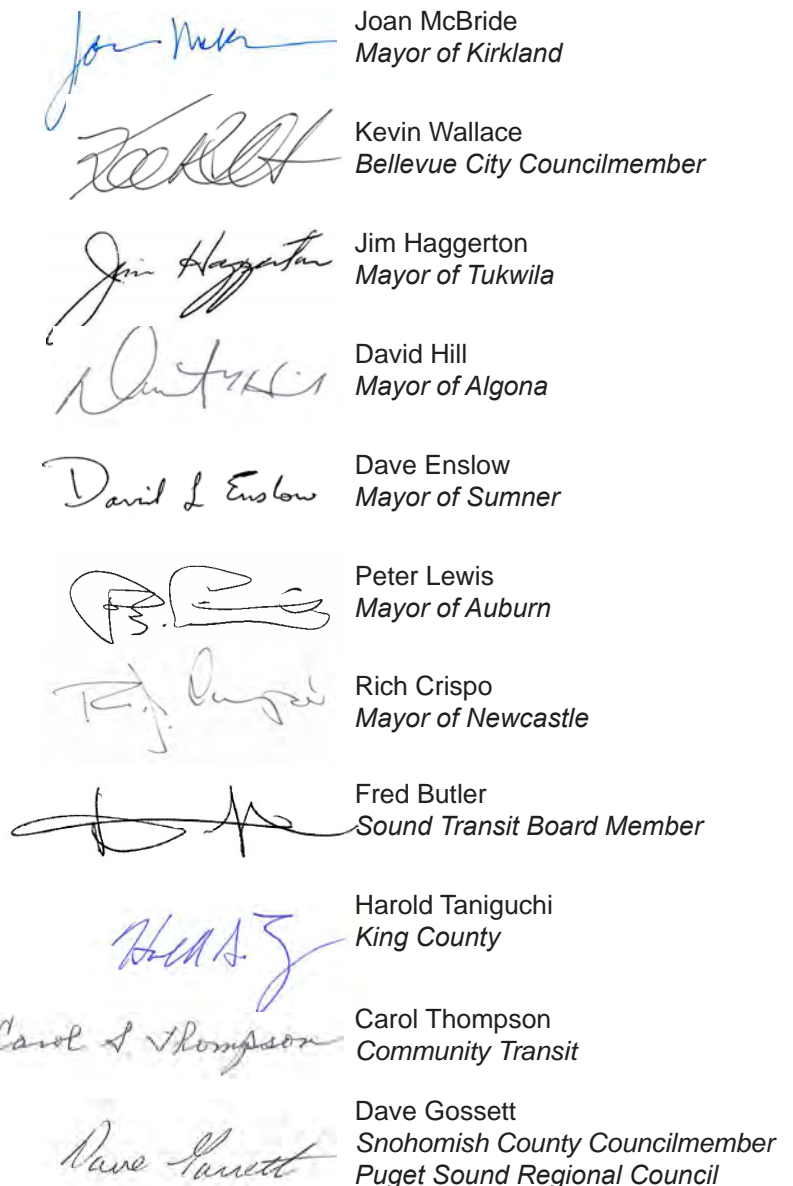 Joan McBride
Mayor of Kirkland
Kevin Wallace
Bellevue City Councilmember
Jim Haggerton
Jim Haggerton
Mayor of Tukwila
David Hill
Mayor of Algona
David L Enslow
Dave Enslow
Mayor of Sumner
Peter Lewis
Mayor of Auburn
Rich Crispo
Mayor of Newcastle
Fred Butler
Sound Transit Board Member
Harold Taniguchi
King County
Carol S Thompson
Carol Thompson
Community Transit
Dave Gossett
Snohomish County Councilmember
Dave
Puget Sound Regional Council